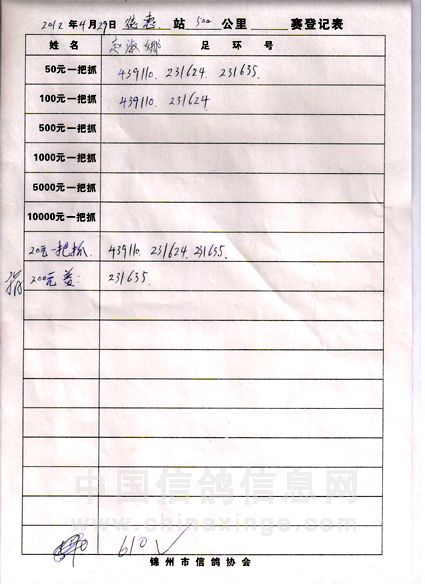 2012年4月29日 德惠 站 500 公里 赛登记表
姓名 赵淑娜 足环号
50元一把抓 439110. 231624. 231635.
100元一把抓 439110. 231624
500元一把抓
1000元一把抓
5000元一把抓
10000元一把抓
20元一把抓. 439110. 231624. 231635.
200元 231635.
中国信鸽信息网
www.chinaxinge.com
610√
锦州市信鸽协会